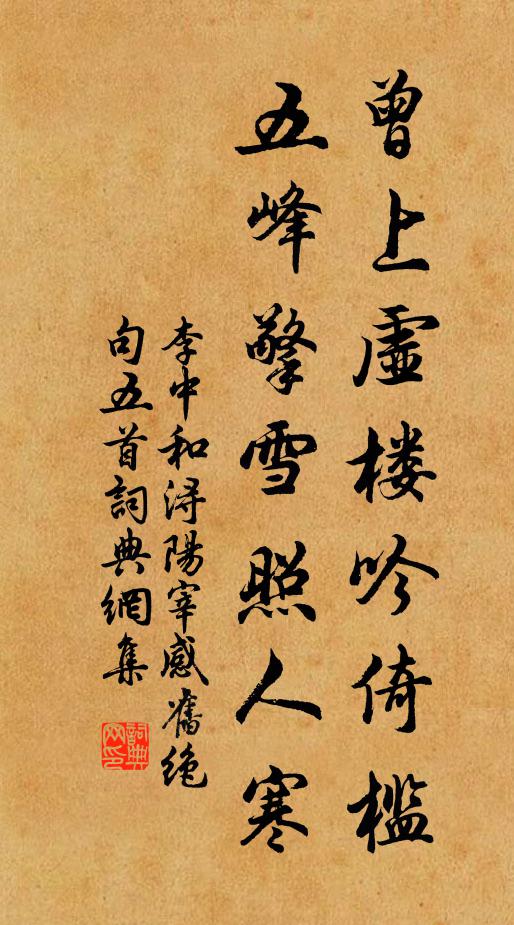 曾上虛楼吟倚檻
五峰擎雪照人寒
李中和潯陽宰感舊绝
句五首詞典網集
詞典网印